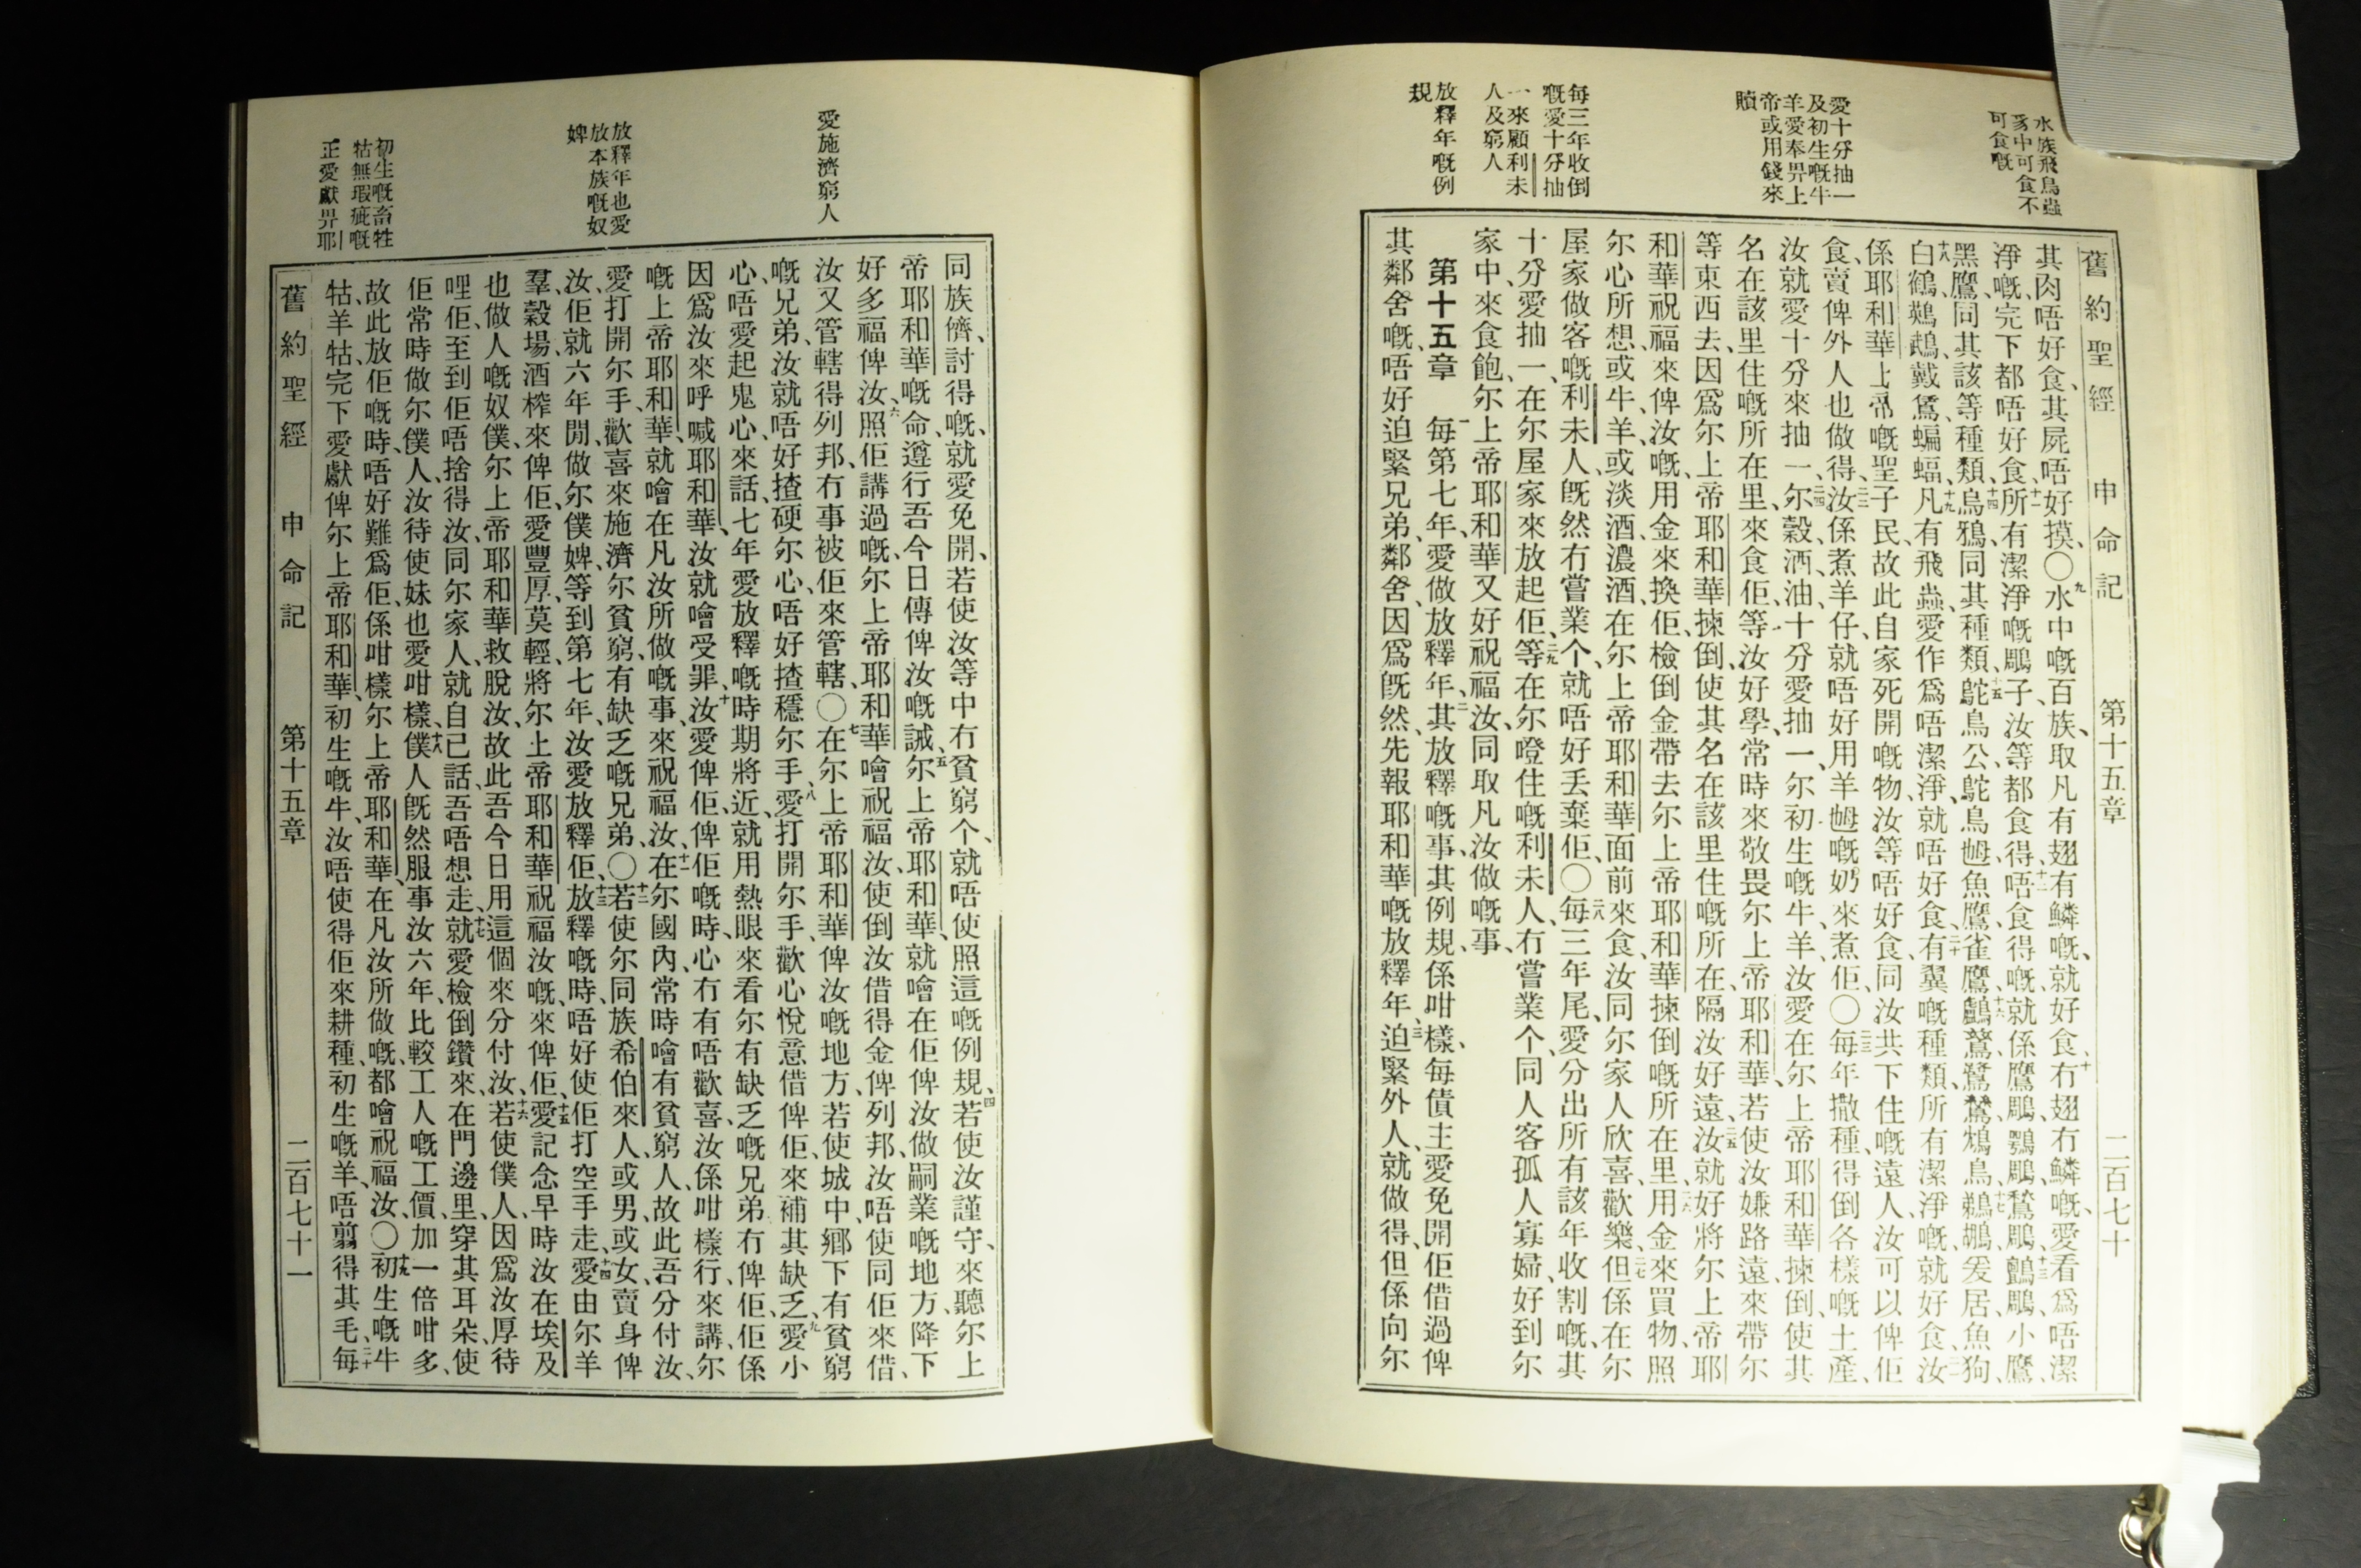 水族飛鳥蟲
豸中可食不
可食嘅
愛十分抽一
及初生嘅牛
羊愛奉畀上
帝或用錢來
贖
每三年收倒
嘅愛十分抽
一來顧利未
人及窮人
放釋年嘅例
規
舊約聖經 申命記 第十五章 二百七十
其肉唔好食、其屍唔好摸、〇九水中嘅百族、取凡有翅有鱗嘅、就好食、十冇翅冇鱗嘅、愛看爲唔潔
淨嘅、完下都唔好食、十一所有潔淨嘅鵰子、汝等都食得、十二唔食得嘅、就係鷹鵰、鶚鵰、鶩鵰、十三鸇鵰、小鷹、
黑鷹、同其該等種類、十四烏鴉、同其種類、十五鴕鳥公、鴕鳥乸、魚鷹、雀鷹、十六鸕鶿、鷺鷥、鴆鳥、十七鵜鶘、爰居、魚狗、
十八白鶴、鷞鵡、戴鵀、蝙蝠、十九凡有飛蟲、愛作爲唔潔淨、就唔好食、二十有翼嘅種類、所有潔淨嘅、就好食、二一汝
係耶和華上帝嘅聖子民、故此自家死開嘅物、汝等唔好食、同汝共下住嘅遠人、汝可以俾佢
食、賣俾外人也做得、汝係煮羊仔、就唔好用羊乸嘅奶來煮佢、〇二二每年撒種、得倒各樣嘅土產、
汝就愛十分來抽一、尔穀、酒、油、十分愛抽一、尔初生嘅牛、羊、汝愛在尔上帝耶和華揀倒、使其
名在該里住嘅所在里、來食佢等、汝好學、常時來敬畏尔上帝耶和華、二四若使汝嫌路遠、來帶尔
等東西去、因爲尔上帝耶和華揀倒、使其名在該里住嘅所在、隔汝好遠、二五汝就好將尔上帝耶
和華祝福來俾汝嘅、用金來換佢、檢倒金帶去尔上帝耶和華揀倒嘅所在里、二六用金來買物、照
尔心所想、或牛、羊、或淡酒、濃酒、在尔上帝耶和華面前來食、汝同尔家人欣喜歡樂、二七但係在尔
屋家做客嘅利未人、旣然冇嘗業个、就唔好丢棄佢、〇二八每三年尾、愛分出所有該年收割嘅、其
十分愛抽一、在尔屋家來放起佢、二九等在尔墱住嘅利未人、冇嘗業个、同人客孤人寡婦、好到尔
家中、來食飽、尔上帝耶和華又好祝福汝、同取凡汝做嘅事、
第十五章 一每第七年、愛做放釋年、二其放釋嘅事、其例規、係咁樣、每債主愛免開佢借過俾
其鄰舍嘅、唔好迫緊兄弟、鄰舍、因爲旣然先報耶和華嘅放釋年、三迫緊外人、就做得、但係向尔
愛施濟窮人
放釋年也愛
放本族嘅奴
婢
初生嘅畜牲
牯無瑕疵嘅
正愛獻畀耶
同族儕、討得嘅、就愛免開、若使汝等中冇貧窮个、就唔使照這嘅例規、四若使汝謹守、來聽尔上
帝耶和華嘅命、遵行吾今日傳俾汝嘅誡、五尔上帝耶和華、就噲在佢俾汝做嗣業嘅地方、降下
好多福俾汝、六照佢講過嘅、尔上帝耶和華噲祝福汝、使倒汝借得金俾列邦、汝唔使同佢來借、
汝又管轄得列邦、冇事被佢來管轄、〇七在尔上帝耶和華俾汝嘅地方、若使城中、鄉下有貧窮
嘅兄弟、汝就唔好揸硬尔心、唔好揸穩尔手、八愛打開尔手、歡心悅意借俾佢、來補其缺乏、九愛小
心、唔愛起鬼心、來話、七年愛放釋嘅時期將近、就用熱眼來看尔有缺乏嘅兄弟、冇俾佢、佢係
因爲汝來呼喊耶和華、汝就噲受罪、十汝愛俾佢、俾佢嘅時、心冇有唔歡喜、汝係咁樣行、來講、尔
嘅上帝耶和華、就噲在凡汝所做嘅事、來祝福汝、十一在尔國內、常時噲有貧窮人、故此吾分付汝、
愛打開尔手、歡喜來施濟尔貧窮、有缺乏嘅兄弟、〇十二若使尔同族希伯來人、或男、或女、賣身俾
汝、佢就六年閒做尔僕婢、等到第七年、汝愛放釋佢、十三放釋嘅時、唔好使佢打空手走、十四愛由尔羊
羣、穀場、酒榨來俾佢、愛豐厚、莫輕、將尔上帝耶和華祝福汝嘅、來俾佢、十五愛記念早時汝在埃及
也做人嘅奴僕、尔上帝耶和華救脫汝、故此吾今日用這個來分付汝、十六若使僕人、因爲汝厚待
哩佢、至到佢唔捨得汝、同尔家人、就自己話、吾唔想走、十七就愛檢倒鑽來、在門邊里、穿其耳朵、使
佢常時做尔僕人、汝待使妹也愛咁樣、十八僕人旣然服事汝六年、比較工人嘅工價、加一倍咁多、
故此放佢嘅時、唔好難爲佢、係咁樣、尔上帝耶和華、在凡汝所做嘅、都噲祝福汝、〇十九初生嘅牛
牯、羊牯、完下愛獻俾尔上帝耶和華、初生嘅牛、汝唔使得佢來耕種、初生嘅羊、唔翦得其毛、二十每
舊約聖經 申命記 第十五章 二百七十一